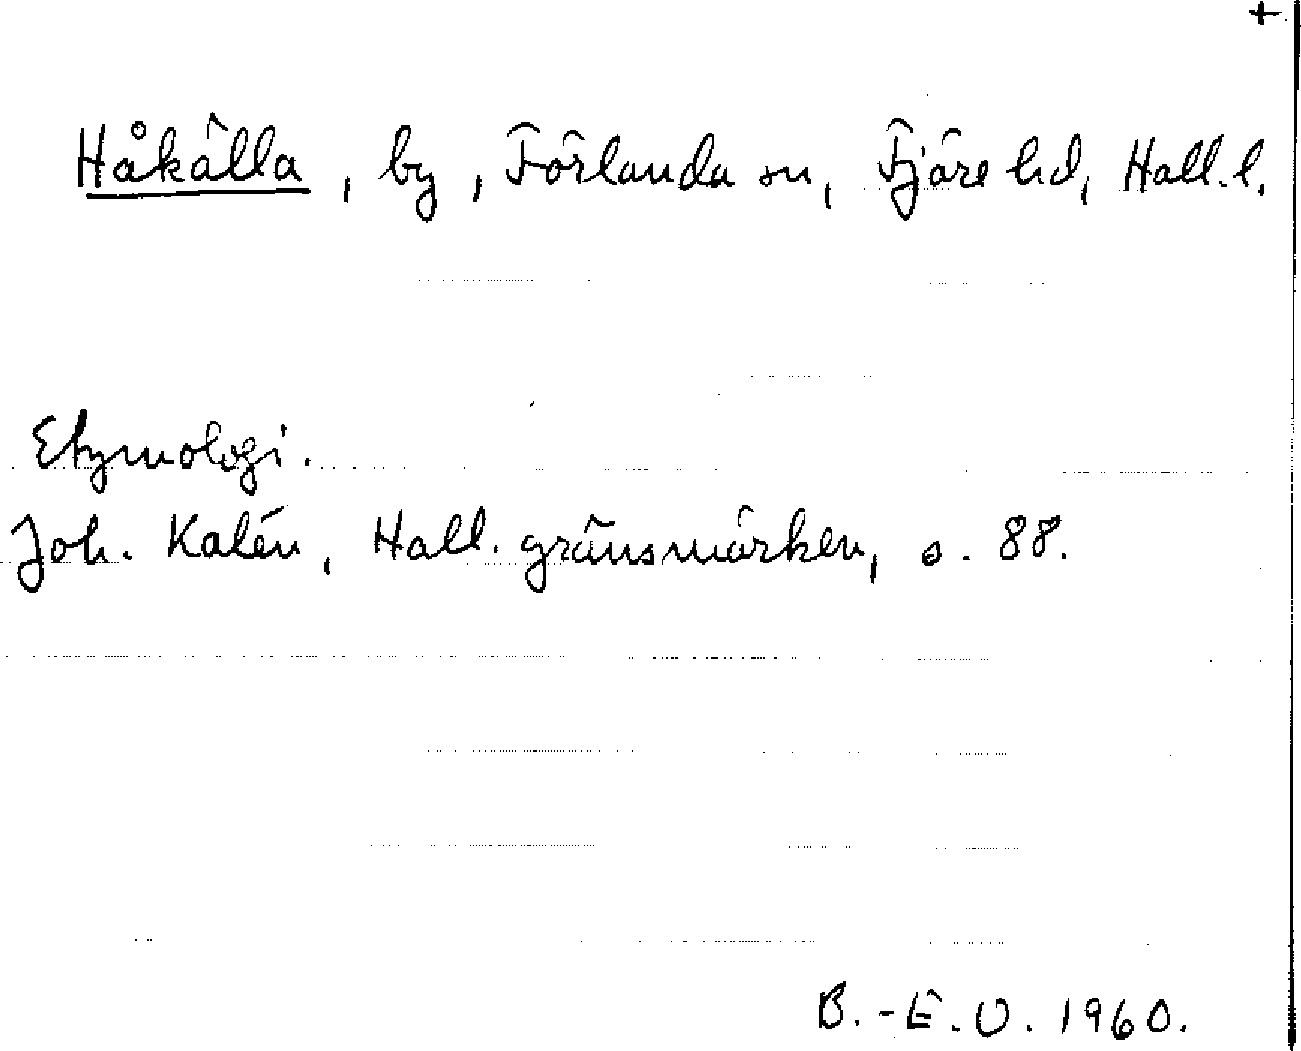 +
Håkälla, by, Förlanda sn, Fjäre hd, Hall. l.
Etymologi.
Joh. Kalén, Hall. gränsmärken, s. 88.
B.-E. O. 1960.